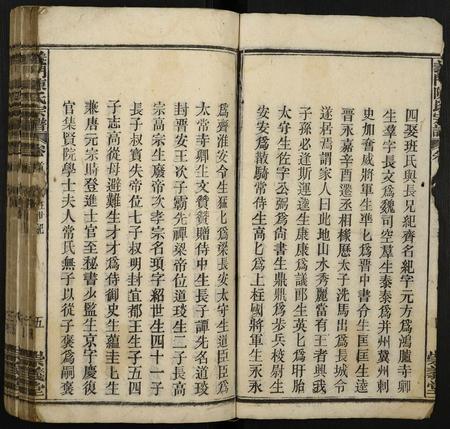 四娶班氏與長兄紀齊名紀字元方爲鴻臚寺卿
生羣字長文爲魏司空羣生泰泰爲并州冀州刺
史加奮威將軍生準匕爲晉中書令生匡匡生逵
晉永嘉辛酉遷丞相椽歷太子洗馬出爲長城令
遂居焉謂家人曰此地山水秀麗當有王者興我
子孫必逢斯運逵生康康爲議郎生英匕爲盱胎
太守生佐字公弼爲尚書生鼎鼎爲步兵校尉生
高匕爲散騎常侍生高匕爲上柱國將軍生永永
爲齊淮安令生猛匕爲梁長安太守生道臣臣爲
太常寺卿生文贊贊贈侍中生長子譚先名道琰
封晉安王次子霸先禪梁帝位道琰生二子長高
宗高宗生廢帝次孝宗名頊字紹世生四十一子
長子叔寳失帝位七子叔明封宜都王生子五四
子志高從母避難生才才爲侍御史生蘊圭匕生
兼唐元宗時登進士官至秘書少監生京字慶復
官集賢院學士夫人常氏無子以從子褒爲嗣褒
義門陳氏宗譜
五